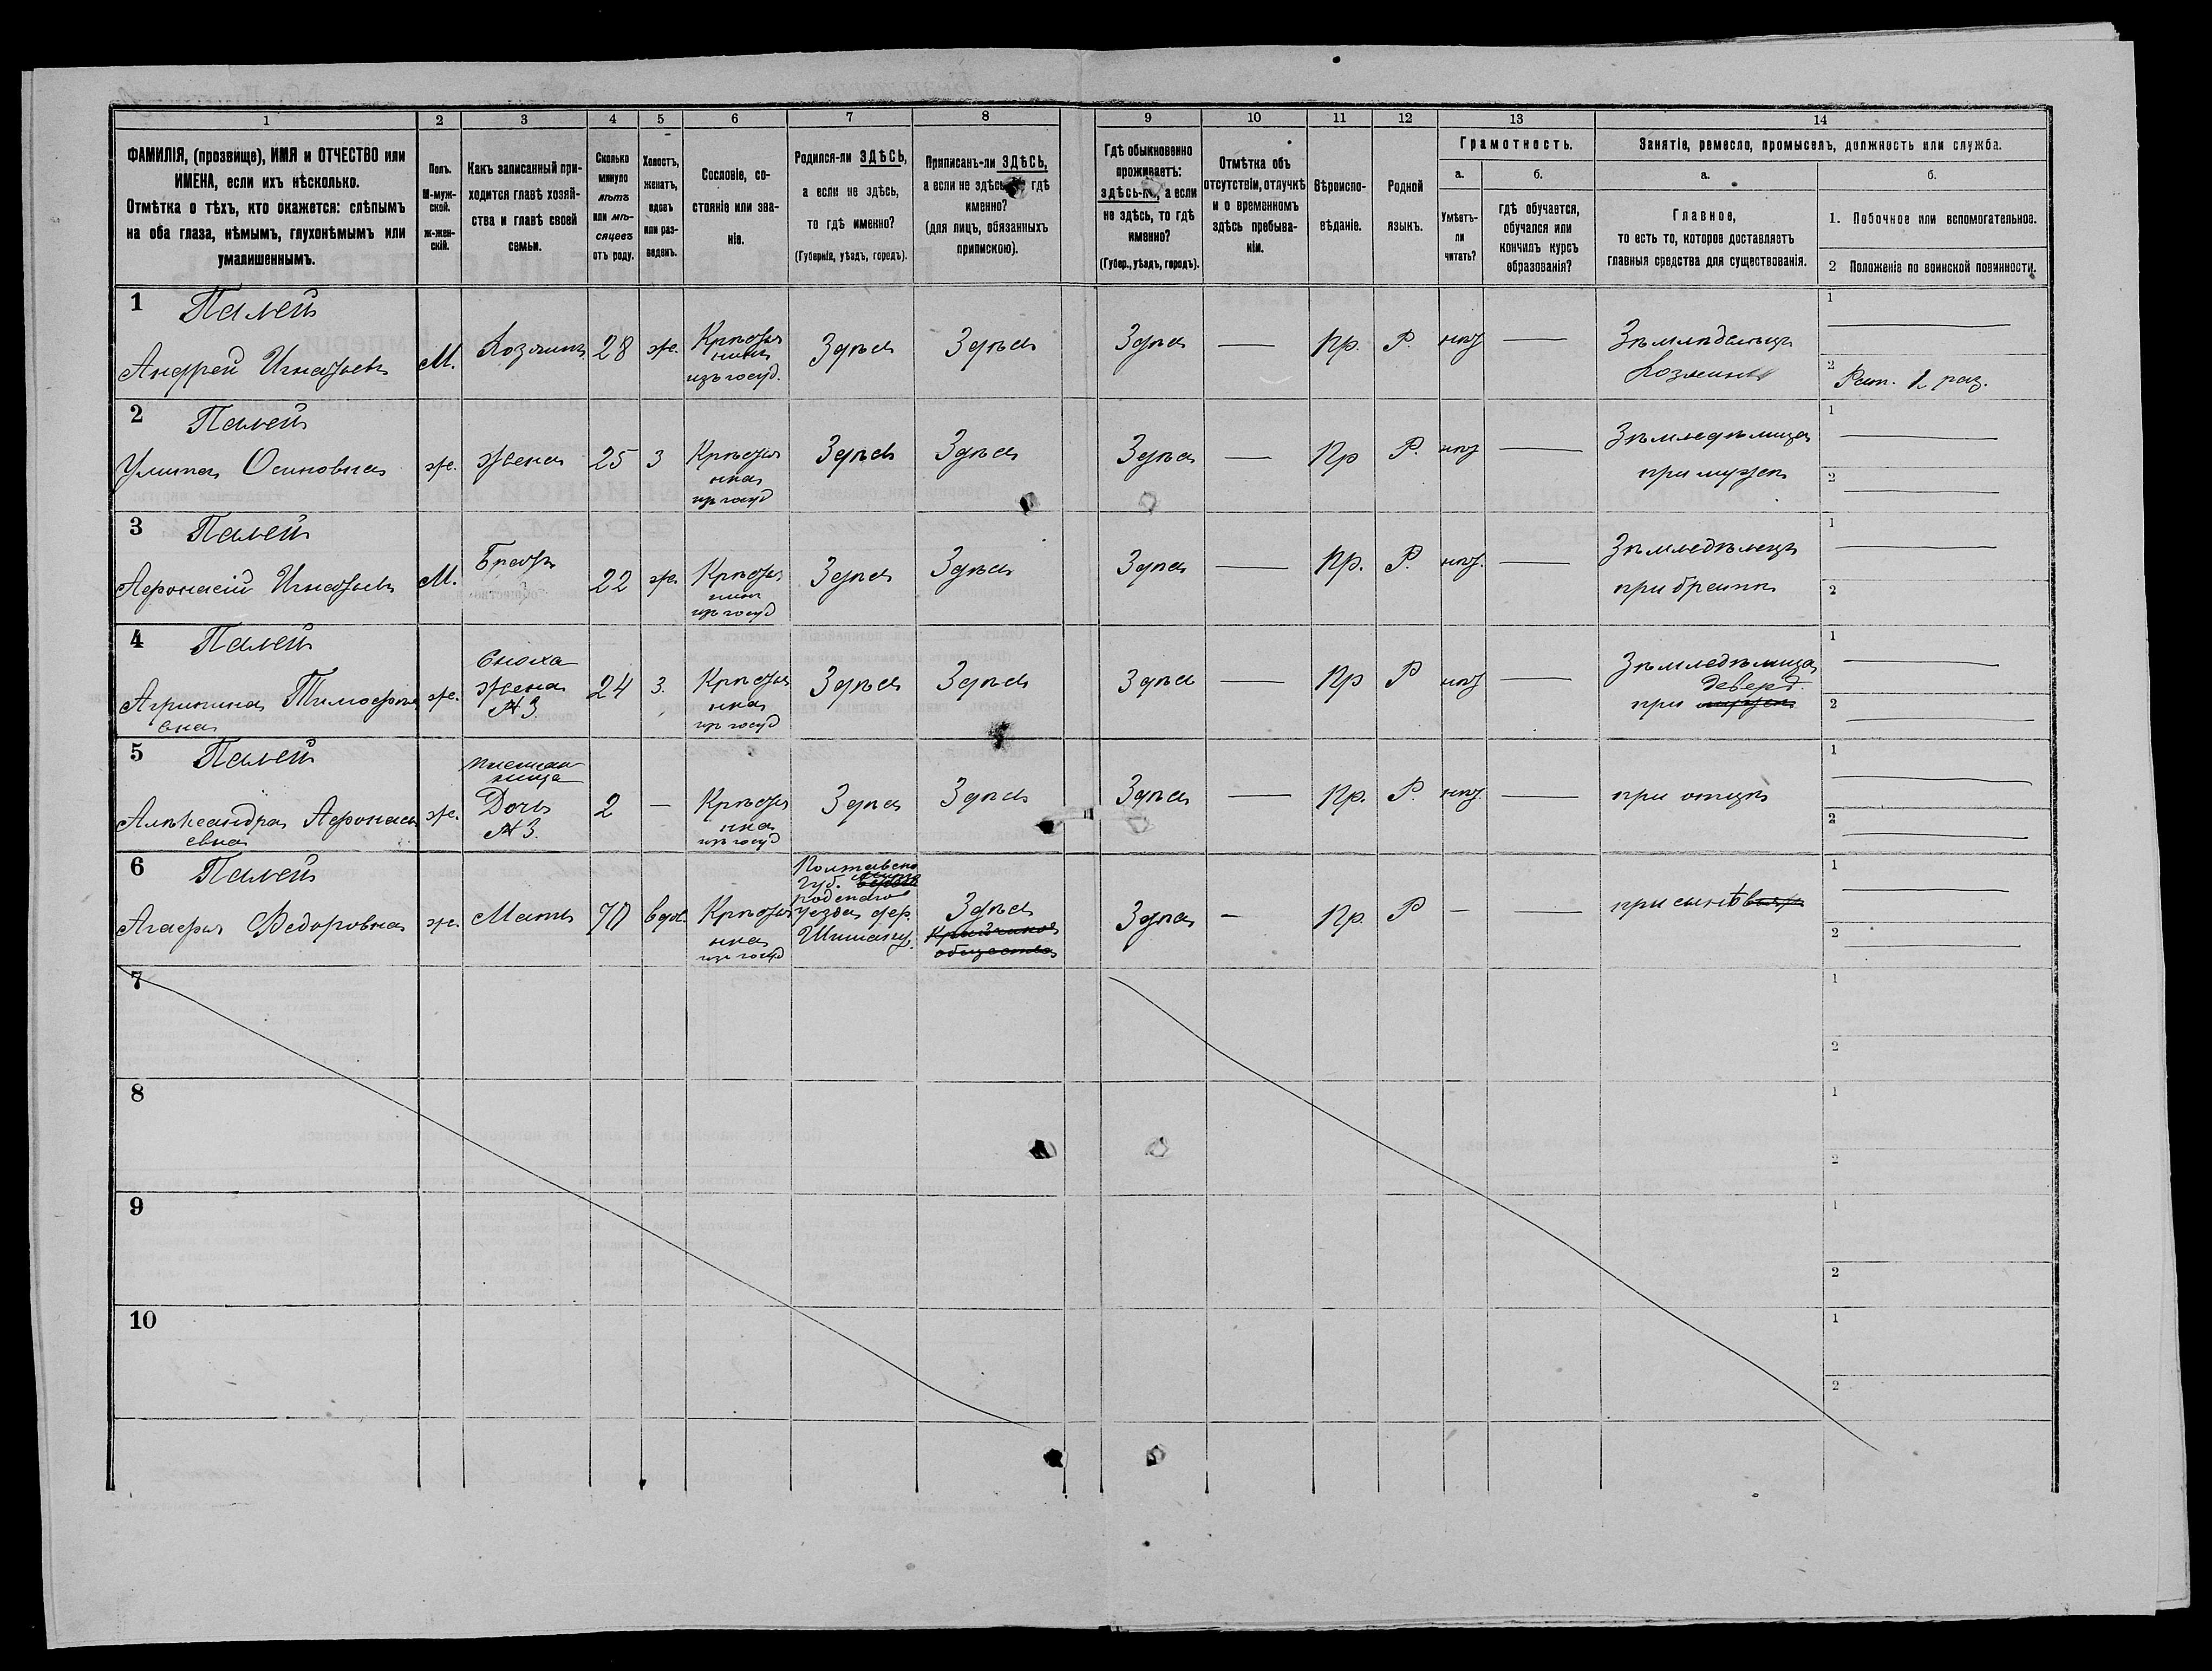 1 2 3 4 5 6 7 8 9 10 11 12 13 14
ФАМИЛІЯ, (прозвище), ИМЯ и ОТЧЕСТВО или
ИМЕНА, если ихъ нѣсколько.
Отмѣтка о тѣхъ, кто окажется: слѣпымъ
на оба глаза, нѣмымъ, глухонѣмымъ или
умалишеннымъ.
Полъ.
М-муж-
ской.
ж-жен-
скій.
Какъ записанный при-
ходится главѣ хозяй-
ства и главѣ своей
семьи.
Сколько
минуло
лѣтъ
или мѣ-
сяцевъ
отъ роду.
Холостъ,
женатъ,
вдовъ
или раз-
веденъ.
Сословіе, со-
стояніе или зва-
ніе.
Родился-ли ЗДѢСЬ,
а если не здѣсь,
то гдѣ именно?
(Губернія, уѣздъ, городъ).
Приписанъ-ли ЗДѢСЬ,
а если не здѣсь гдѣ
именно?
(для лицъ, обязанныхъ
припискою).
Гдѣ обыкновенно
проживаетъ:
здѣсь-ли, а если
не здѣсь, то гдѣ
именно?
(Губер., уѣздъ, городъ).
Отмѣтка объ
отсутствіи, отлучкѣ
и о временномъ
здѣсь пребыва-
ніи.
Вѣроиспо-
вѣданіе.
Родной
языкъ.
Грамотность.
а.
Умѣетъ-
ли
читать?
б.
гдѣ обучается,
обучался или
кончилъ курсъ
образованія?
Занятіе, ремесло, промыселъ, должность или служба.
а.
Главное,
то есть то, которое доставляетъ
главныя средства для существованія.
б.
1. Побочное или вспомогательное.
2 Положеніе по воинской повинности.
1 Палей
Андрей Игнатьевъ М. Хозяинъ 28 ж. Крѣстья
нинъ
изъ госуд. Здѣсь Здѣсь Здѣсь — Пр. Р. нѣт — Зѣмлѣделецъ
Хозяинъ
1
2 Рат. 1 раз.
2 Палей
Улита Осиповна ж. Жена 25 З Крѣстья
нка
изъ госуд Здѣсь Здѣсь Здѣсь — Пр Р. нѣт — Зѣмледѣлица
при мужѣ
1
2
3 Палей
Афонасій Игнатьевъ М. Братъ 22 ж. Крѣстья
нин
изъ госуд Здѣсь Здѣсь Здѣсь — Пр. Р. нѣт. — Зѣмледѣлецъ
при братѣ
1
2
4 Палей
Агрипина Тимофѣ
вна ж. Сноха
жена
№3. 24 З. Крѣстья
нка
изъ госуд Здѣсь Здѣсь Здѣсь — Пр Р нѣт — Зѣмледѣлица
деверѣ.
при мужѣ
1
2
5 Палей
Алѣксандра Афонась
евна ж. племян
ница
Дочь
№3. 2 — Крѣстья
нка
изъ госуд Здѣсь Здѣсь Здѣсь — Пр. Р. нѣт. — при отцѣ
1
2
6 Палей
Агафья Федоровна ж. Мать 70 вдов. Крѣстья
нка
изъ госуд Полтавско
Губ.
уезда дер.
Здѣсь
общества Здѣсь — Пр. Р — — при сынѣ
1
2
7
1
2
8
1
2
9
1
2
10
1
2